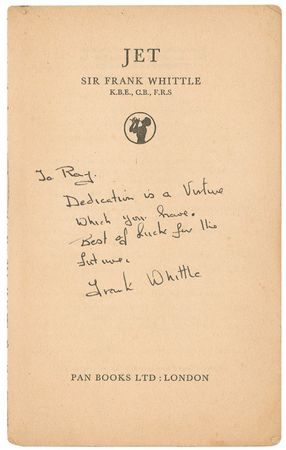 JET
SIR FRANK WHITTLE
K.B.E., C.B., F.R.S
To Ray.
Dedication is a Virtue
Which you have.
Best of Luck for the
future.
Frank Whittle
PAN BOOKS LTD : LONDON